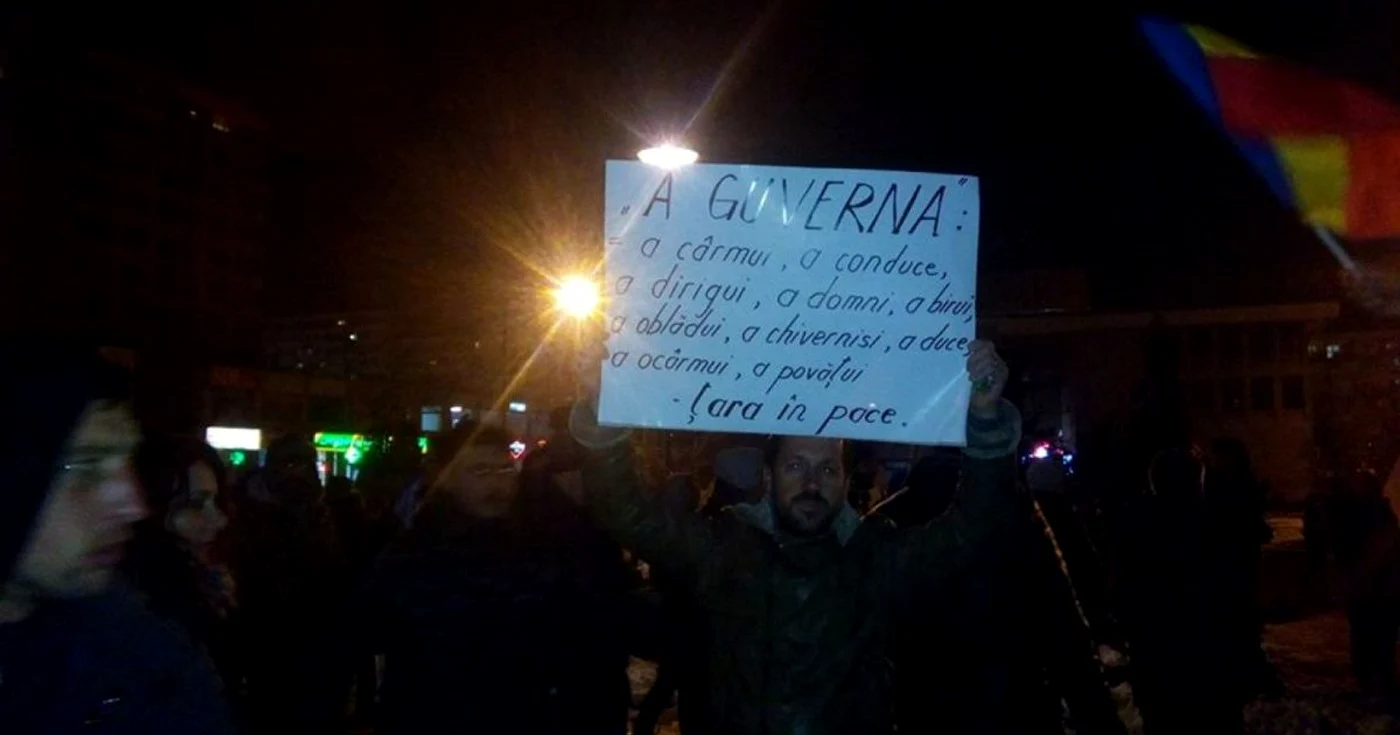 „A GUVERNA":
- a cârmui, a conduce,
a dirigui, a domni, a birui,
a oblădui, a chivernisi, a duce,
a ocârmui, a povățui
- Țara în pace.